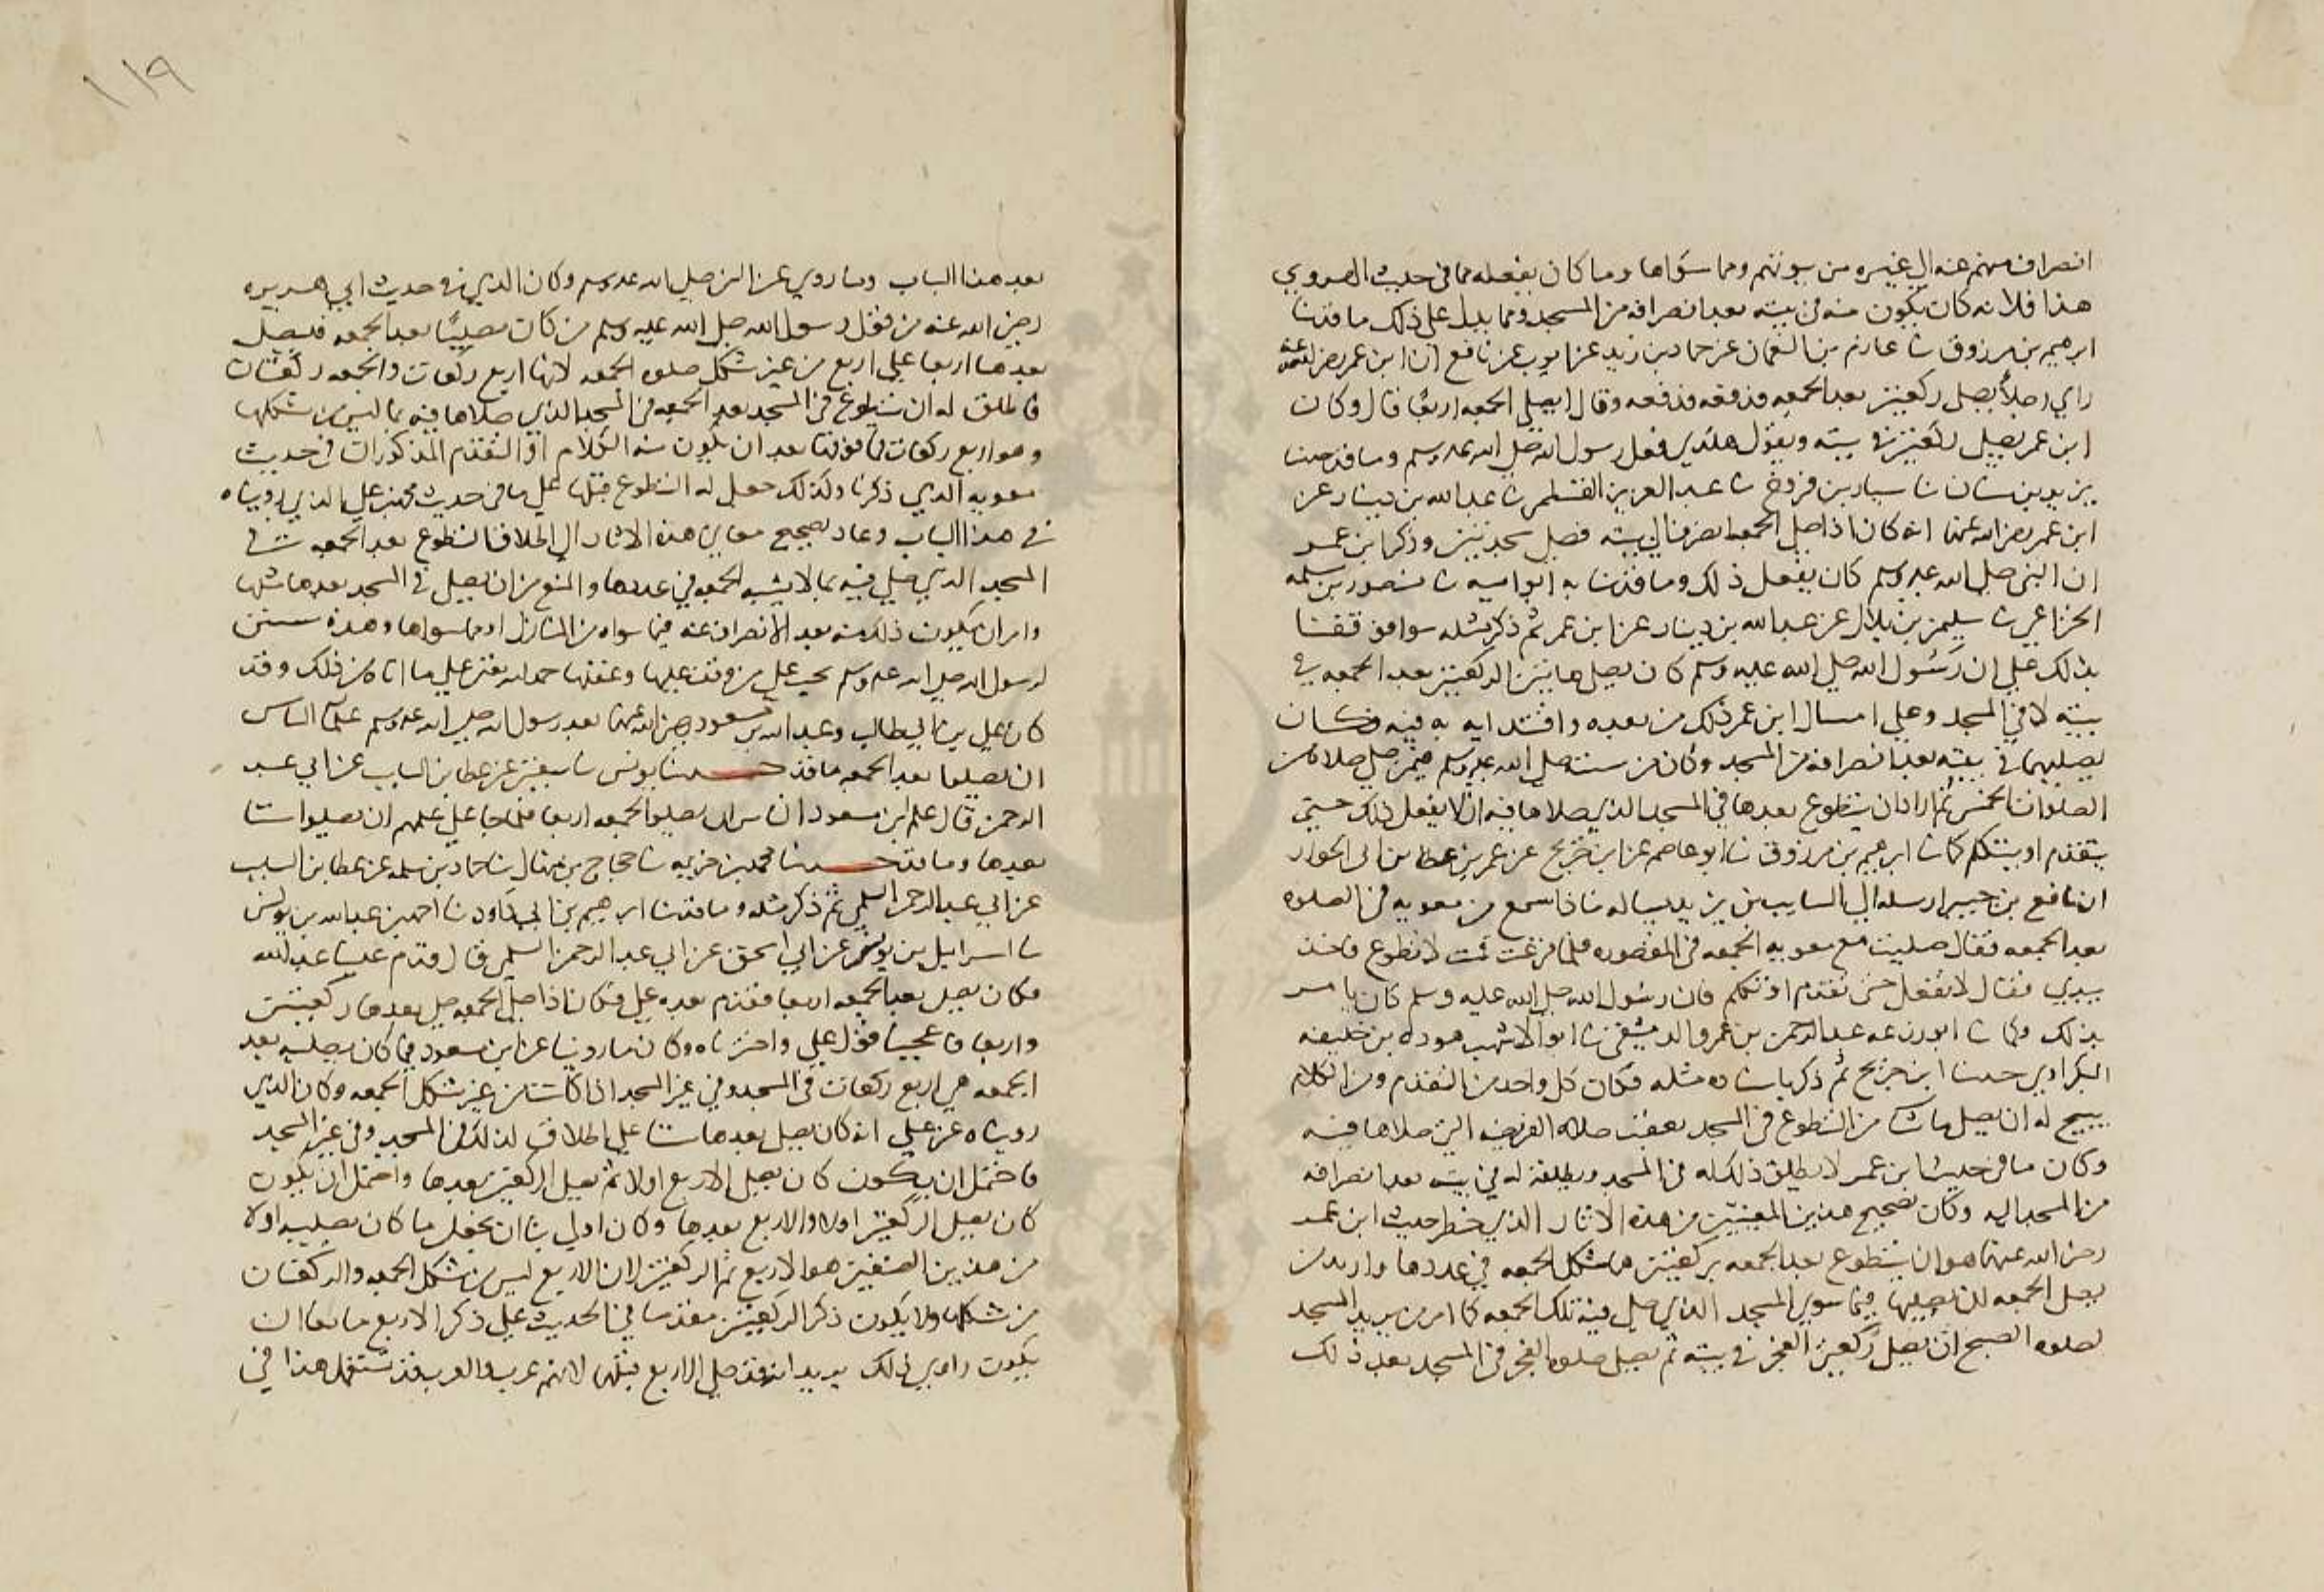 انصرافهم عنه الى غيره من بيوتهم ومما سواها وما كان يفعله مما في حديث المروي
هذا فلانه كان يكون منه في بيته بعد انصرافه من المسجد ومما يدل على ذلك ما قد ثنا
ابرهيم بن مرزوق ثنا عارم بن النعمان عن حماد بن زيد عن ايوب عن نافع ان ابن عمر رضي الله عنه
راي رجلاً يصلي ركعتين بعد الجمعه فدفعه وقال اتصلي الجمعه اربعًا قال وكان
ابن عمر يصلي ركعتين في بيته ويقول هكذي فعل رسول الله صلى الله عليه وسلم وما قد حدثنا
يزيد بن سنان ثنا سيار بن فروخ ثنا عبد العزيز القسملي ثنا عبد الله بن دينار عن
ابن عمر رضي الله عنهما انه كان اذا صلى الجمعه انصرف الى بيته فصلى سجدتين وذكر ابن عمر
ان النبي صلى الله عليه وسلم كان يفعل ذلك وما قد ثنا به ابو اميه ثنا منصور بن سلمه
الخزاعي ثنا سليمن بن بلال عن عبد الله بن دينار عن ابن عمر ثم ذكر مثله سوا فوقفنا
بذلك على ان رسول الله صلى الله عليه وسلم كان يصلي هاتين الركعتين بعد الجمعه في
بيته لا في المسجد وعلى امتثال ابن عمر ذلك من بعده واقتدايه به فيه فكان
يصليهما في بيته بعد انصرافه من المسجد وكان من سنته صلى الله عليه وسلم فيمن صلى صلاة من
الصلوات الخمس ثم اراد ان يتطوع بعدها في المسجد الذي صلاها فيه ان لا يفعل ذلك حتى
يتقدم او يتكلم كما ثنا ابرهيم بن مرزوق ثنا ابو عاصم عن ابن جريج عن عمر بن عطا بن ابي الخوار
ان نافع بن جبير ارسله الى السايب بن يزيد يساله ماذا سمع من معويه في الصلوه
بعد الجمعه فقال صليت مع معويه الجمعه في المقصوره فلما فرغت قمت لاتطوع فاخذ
بيدي فقال لا تفعل حتى تقدم او تكلم فان رسول الله صلى الله عليه وسلم كان يامر
بذلك وكما ثنا ابو زرعه عبد الرحمن بن عمرو الدمشقي ثنا ابو الاشهب هوذه بن خليفه
البكراوي حدثنا ابن جريج ثم ذكر باسناده مثله فكان كل واحد من التقدم ومن الكلام
يبيح له ان يصلي ما شا من التطوع في المسجد بعقب صلاه الفريضه التي صلاها فيه
وكان ما في حديث ابن عمر لا يطلق ذلك له في المسجد ويطلقه له في بيته بعد انصرافه
من المسجد اليه وكان تصحيح هذين المعنيين من هذه الاثار الذي حظر حديث ابن عمر
رضي الله عنهما هو ان يتطوع بعد الجمعه بركعتين هما شكل الجمعه في عددها واريد من
يصلي الجمعه ان يصليها فيما سوى المسجد الذي صلى فيه تلك الجمعه كما امر من يريد المسجد
لصلوه الصبح ان يصلي ركعتي الفجر في بيته ثم يصلي صلوه الفجر في المسجد بعد ذلك
١١٩
بعد هذا الباب وما روي عن النبي صلى الله عليه وسلم وكان الذي في حديث ابي هريره
رضي الله عنه من قول رسول الله صلى الله عليه وسلم من كان مصليًا بعد الجمعه فليصل
بعدها اربعا على اربع من غير شكل صلوه الجمعه لانها اربع ركعات والجمعه ركعتان
فاطلق له ان يتطوع في المسجد بعد الجمعه في المسجد الذي صلاها فيه بما ليس من شكلها
وهو اربع ركعات فما فوقها بعد ان يكون منه الكلام او التقدم المذكوران في حديث
معويه الذي ذكرنا ولذلك جعل له التطوع قبلها على ما في حديث علي الذي رويناه
في هذا الباب وعاد تصحيح معاني هذه الاثار الى اطلاق التطوع بعد الجمعه في
المسجد الذي صلي فيه بما لا يشبه الجمعه في عددها والمنع من ان يصلى في المسجد بعدها مثلها
وامر ان يكون ذلك منه بعد الانصراف عنه فيما سواه من المنازل او مما سواها وهذه سنن
لرسول الله صلى الله عليه وسلم يجب على من وقف عليها وعقلها حمد الله تعالى على ما اتاه من ذلك وقد
كان علي بن ابي طالب وعبد الله بن مسعود رضي الله عنهما بعد رسول الله صلى الله عليه وسلم علما الناس
ان يصلوا بعد الجمعه ما قد حدثنا يونس ثنا سفين عن عطا بن السايب عن ابي عبد
الرحمن قال علم ابن مسعود الناس ان يصلوا الجمعه اربعا فلما جا علي علمهم ان يصلوا ستا
بعدها وما قد حدثنا محمد بن خزيمه ثنا حجاج بن منهال ثنا حماد بن سلمه عن عطا بن السايب
عن ابي عبد الرحمن السلمي ثم ذكر مثله وما قد ثنا ابرهيم بن ابي داود ثنا احمد بن عبد الله بن يونس
ثنا اسرايل بن يونس عن ابي اسحق عن ابي عبد الرحمن السلمي قال قدم علينا عبد الله
فكان يصلي بعد الجمعه اربعا فقدم بعده علي فكان اذا صلى الجمعه صلى بعدها ركعتين
واربعا فاعجبنا فعل علي واخترناه وكان ما روينا عن ابن مسعود فيما كان يصليه بعد
الجمعه هي اربع ركعات في المسجد وفي غير المسجد اذا كانت من غير شكل الجمعه وكان الذي
رويناه عن علي انه كان يصلي بعدها ستا على اطلاق لذلك في المسجد وفي غير المسجد
فاحتمل ان يكون كان يصلي الاربع اولا ثم يصلي الركعتين بعدها واحتمل ان يكون
كان يصلي الركعتين اولا والاربع بعدها وكان اولى بنا ان نجعل ما كان يصليه اولا
من هذين الصنفين هو الاربع ثم الركعتين لان الاربع ليس من شكل الجمعه والركعتان
من شكلها ولا يكون ذكر الركعتين مقدما في الحديث على ذكر الاربع مانعا ان
يكون راوي ذلك يريد انه قد صلى الاربع قبلها لانهم عرب والعرب قد تستعمل هذا في